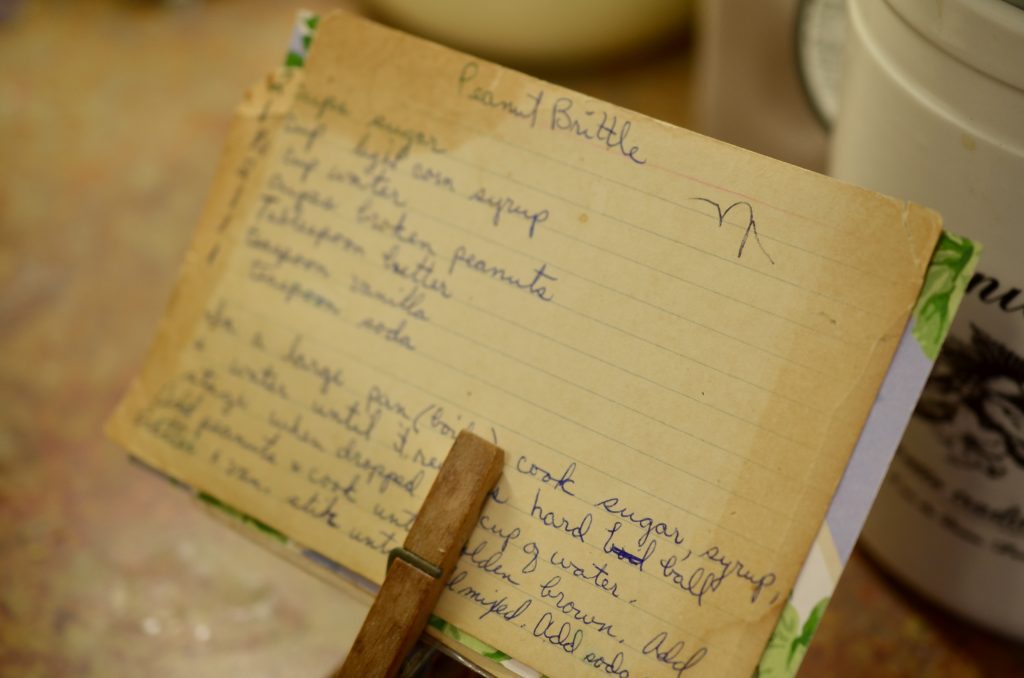 Peanut Brittle
cups sugar
cup light corn syrup
cup water
cups broken peanuts
Tablespoon butter
teaspoon vanilla
teaspoon soda
In a large pan (boil) cook sugar, syrup,
+ water until it hard ball
stage when dropped cup of water.
Add peanuts + cook until golden brown. Add
butter + van. stir until mixed. Add soda